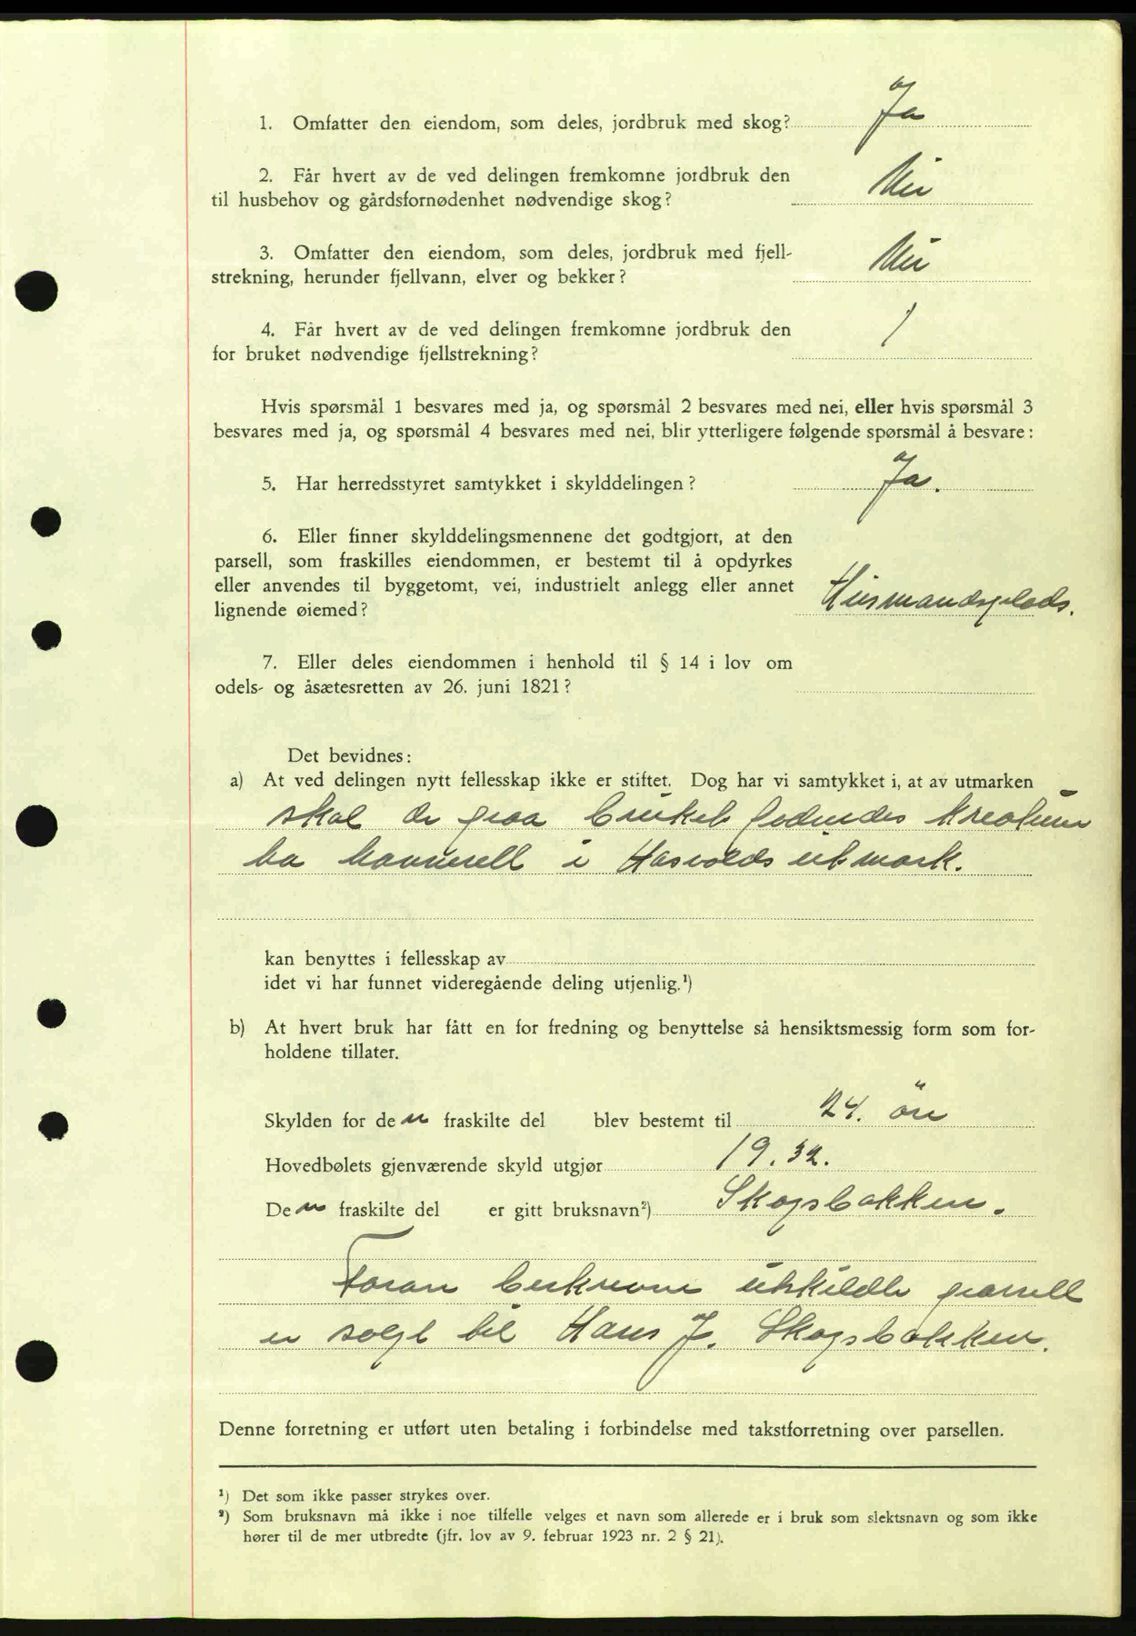 1. Omfatter den eiendom, som deles, jordbruk med skog? Ja
2. Får hvert av de ved delingen fremkomne jordbruk den
til husbehov og gårdsfornødenhet nødvendige skog? Nei
3. Omfatter den eiendom, som deles, jordbruk med fjell-
strekning, herunder fjellvann, elver og bekker? Nei
4. Får hvert av de ved delingen fremkomne jordbruk den
for bruket nødvendige fjellstrekning? /
Hvis spørsmål 1 besvares med ja, og spørsmål 2 besvares med nei, eller hvis spørsmål 3
besvares med ja, og spørsmål 4 besvares med nei, blir ytterligere følgende spørsmål å besvare:
5. Har herredsstyret samtykket i skylddelingen? Ja.
6. Eller finner skylddelingsmennene det godtgjort, at den
parsell, som fraskilles eiendommen, er bestemt til å opdyrkes
eller anvendes til byggetomt, vei, industrielt anlegg eller annet
lignende øiemed? Husmandsplads.
7. Eller deles eiendommen i henhold til § 14 i lov om
odels- og åsætesretten av 26. juni 1821?
Det bevidnes:
a) At ved delingen nytt fellesskap ikke er stiftet. Dog har vi samtykket i, at av utmarken
skal de paa bruket fødendes kreaturer
ha havnerett i Hasvolds utmark.
kan benyttes i fellesskap av
idet vi har funnet videregående deling utjenlig.¹)
b) At hvert bruk har fått en for fredning og benyttelse så hensiktsmessig form som for-
holdene tillater.
Skylden for den fraskilte del blev bestemt til 24. öre
Hovedbølets gjenværende skyld utgjør 19.32.
Den fraskilte del er gitt bruksnavn²) Skogsbakken.
Foran beskrevne utskildte parsell
er solgt til Hans J. Skogsbakken.
Denne forretning er utført uten betaling i forbindelse med takstforretning over parsellen.
¹) Det som ikke passer strykes over.
²) Som bruksnavn må ikke i noe tilfelle velges et navn som allerede er i bruk som slektsnavn og som ikke
hører til de mer utbredte (jfr. lov av 9. februar 1923 nr. 2 § 21).